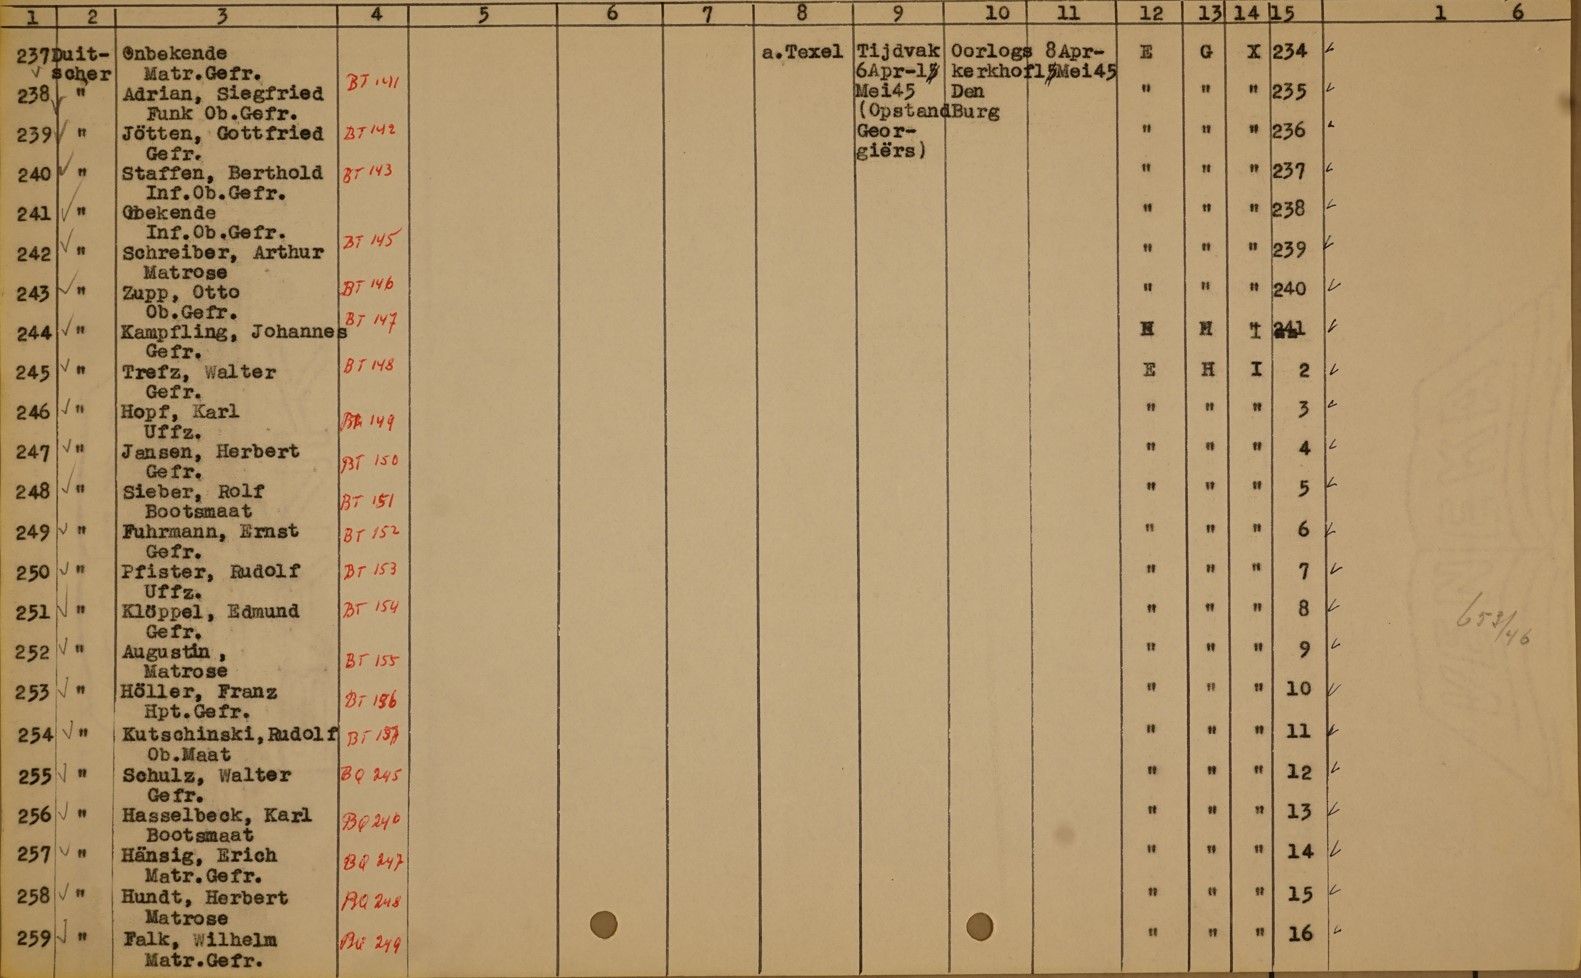 1 2 3 4 5 6 7 8 9 10 11 12 13 14 15 1 6
237 Duit- Onbekende a.Texel Tijdvak Oorlogs 8Apr- E G X 234
scher Matr.Gefr. BT 141 6Apr-15 kerkhof 15Mei45
238 " Adrian, Siegfried Mei45 Den " " " 235
Funk Ob.Gefr. (Opstand Burg
239 " Jötten, Gottfried BT 142 Geor- " " " 236
Gefr. giërs)
240 " Staffen, Berthold BT 143 " " " 237
Inf.Ob.Gefr.
241 " Obekende " " " 238
Inf.Ob.Gefr.
242 " Schreiber, Arthur BT 145 " " " 239
Matrose
243 " Zupp, Otto BT 146 " " " 240
Ob.Gefr.
244 " Kampfling, Johannes BT 147 H I 241
Gefr.
245 " Trefz, Walter BT 148 E H I 2
Gefr.
246 " Hopf, Karl BT 149 " " " 3
Uffz.
247 " Jansen, Herbert BT 150 " " " 4
Gefr.
248 " Sieber, Rolf BT 151 " " " 5
Bootsmaat
249 " Fuhrmann, Ernst BT 152 " " " 6
Gefr.
250 " Pfister, Rudolf BT 153 " " " 7
Uffz.
251 " Klöppel, Edmund BT 154 " " " 8
Gefr.
252 " Augustin, BT 155 " " " 9
Matrose
253 " Höller, Franz BT 156 " " " 10
Hpt.Gefr.
254 " Kutschinski,Rudolf BT 157 " " " 11
Ob.Maat
255 " Schulz, Walter BQ 245 " " " 12
Gefr.
256 " Hasselbeck, Karl BQ 246 " " " 13
Bootsmaat
257 " Hänsig, Erich BQ 247 " " " 14
Matr.Gefr.
258 " Hundt, Herbert BQ 248 " " " 15
Matrose
259 " Falk, Wilhelm BQ 249 " " " 16
Matr.Gefr.
653/46